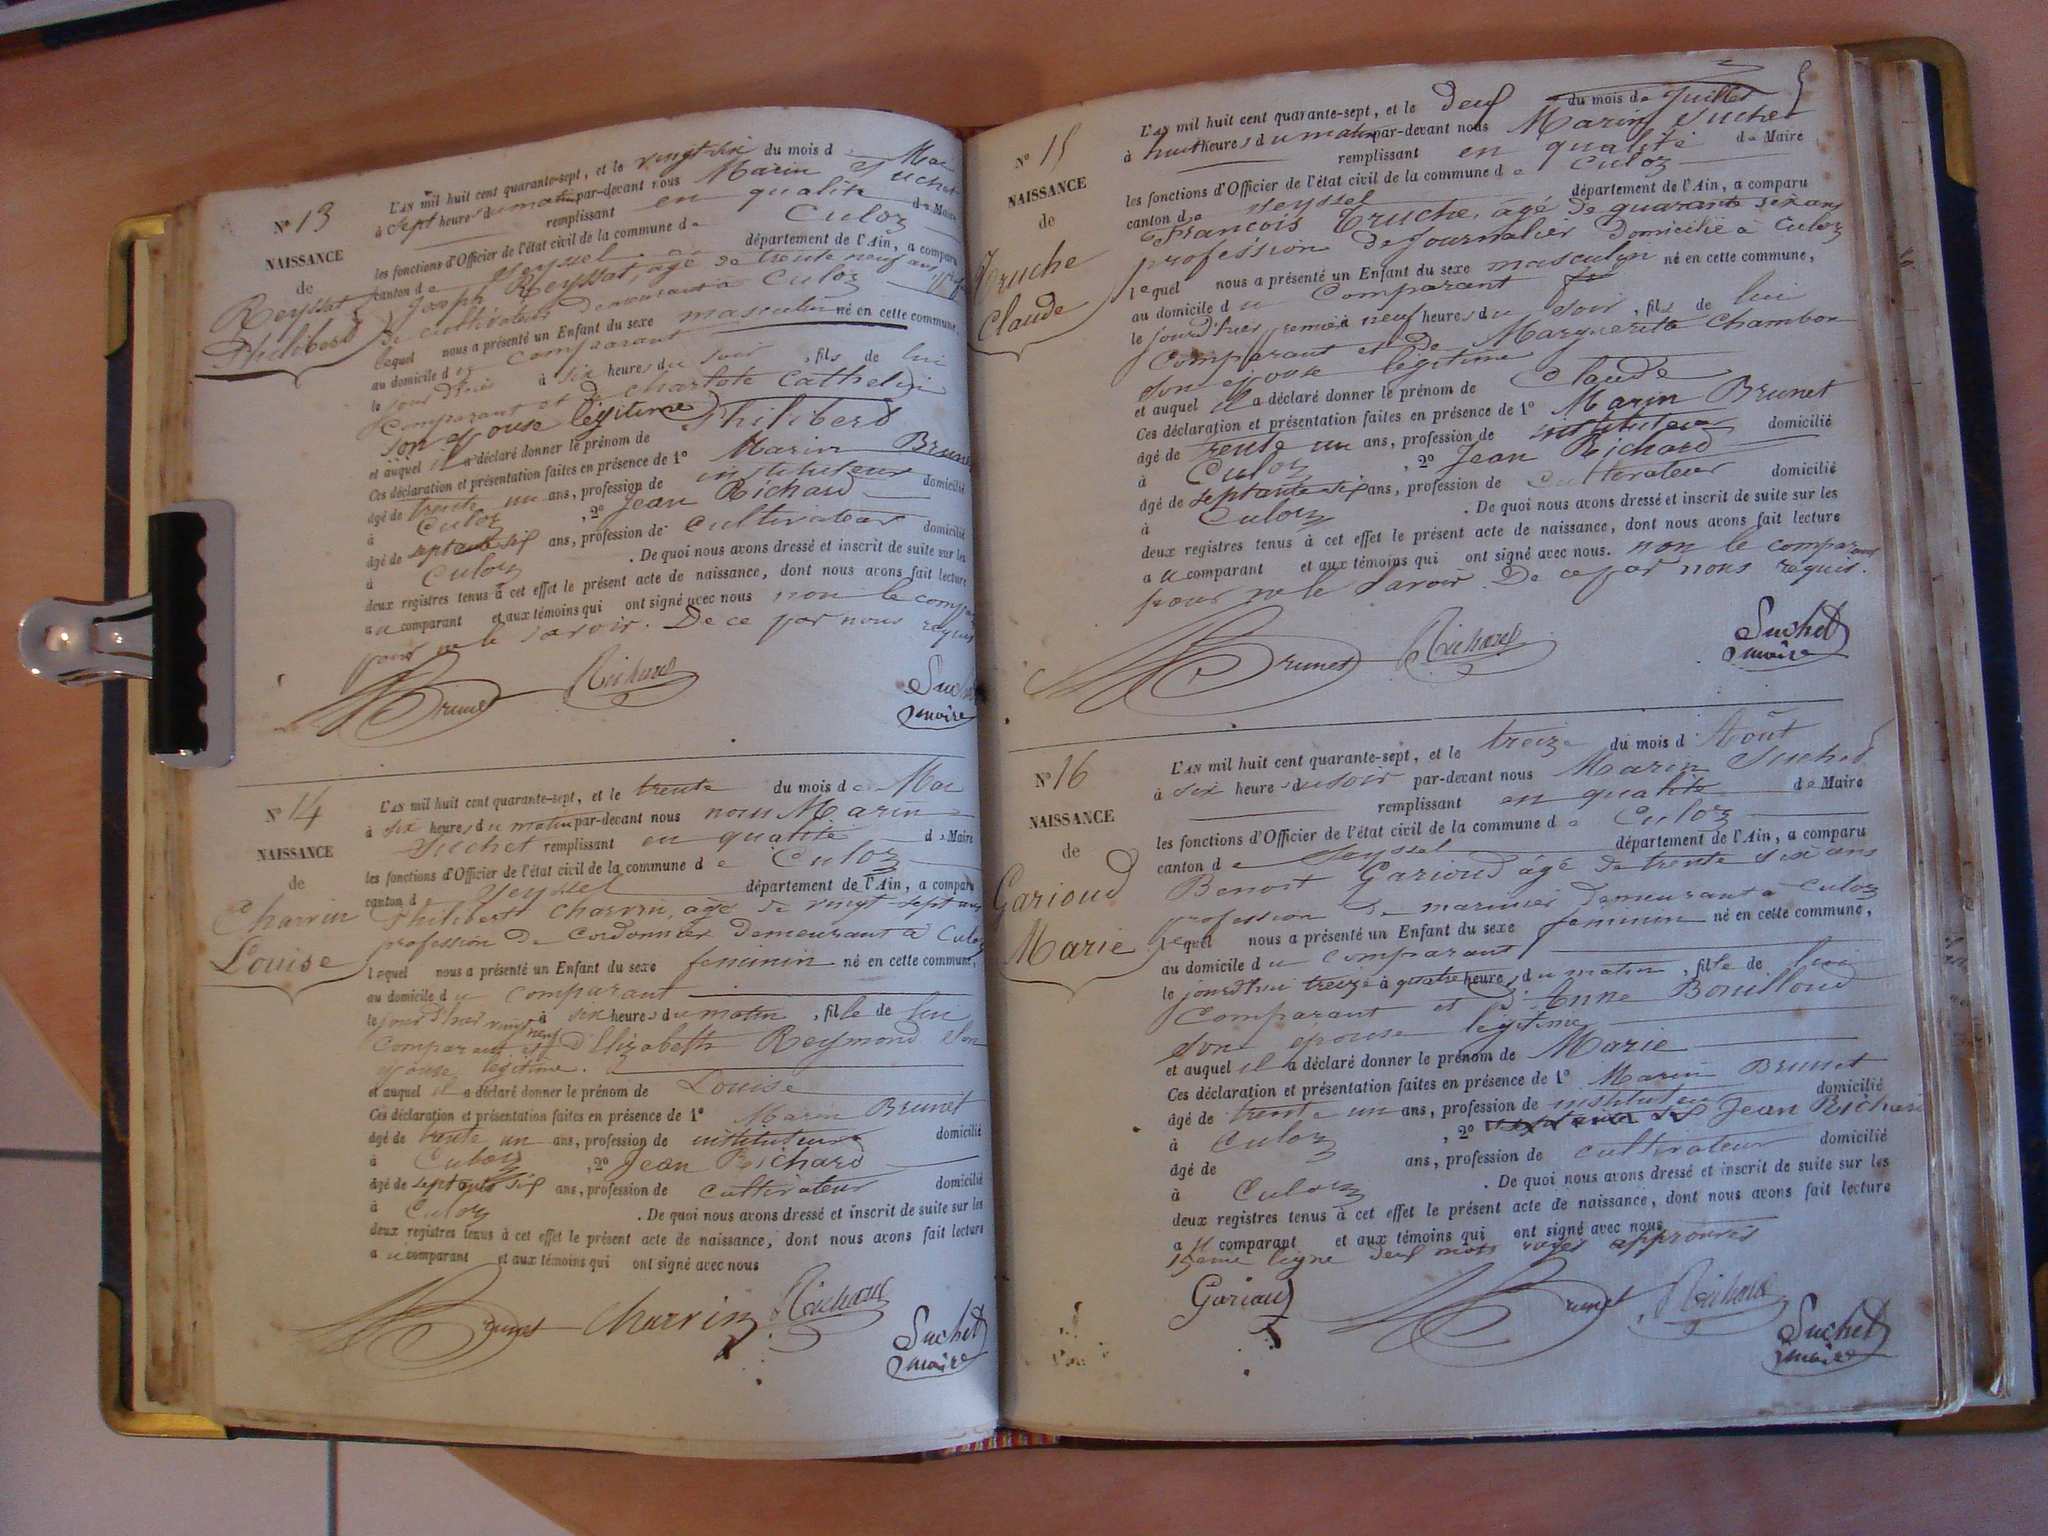 N° 13
NAISSANCE
de
Reyssat
Philibert
L'AN mil huit cent quarante-sept, et le vingt six du mois de Mai
à sept heures du matin par-devant nous Marin Suchet
remplissant en qualité de Maire
les fonctions d'Officier de l'état civil de la commune de Culoz
canton de Seyssel département de l'Ain, a comparu
Joseph Reyssat, âgé de trente neuf ans
de cultivateur demeurant à Culoz
lequel nous a présenté un Enfant du sexe masculin né en cette commune,
au domicile du comparant
le jour d'hier à six heures du soir, fils de lui
comparant et de Charlote Cathelin
son epouse légitime
et auquel il a déclaré donner le prénom de Philibert
Ces déclaration et présentation faites en présence de 1° Marin Brunet
âgé de trente un ans, profession de instituteur domicilié
à Culoz, 2° Jean Richard
âgé de septante six ans, profession de cultivateur domicilié
à Culoz. De quoi nous avons dressé et inscrit de suite sur les
deux registres tenus à cet effet le présent acte de naissance, dont nous avons fait lecture
au comparant et aux témoins qui ont signé avec nous non le comparant
pour ne le savoir. De ce par nous requis
Brunet Richard Suchet
maire
N° 14
NAISSANCE
de
Charvin
Louise
L'AN mil huit cent quarante-sept, et le trente du mois de Mai
à six heures du matin par-devant nous nous Marin
Suchet remplissant en qualité de Maire
les fonctions d'Officier de l'état civil de la commune de Culoz
canton d Seyssel département de l'Ain, a comparu
Philibert Charvin, âgé de vingt sept ans
profession de Cordonnier demeurant à Culoz
lequel nous a présenté un Enfant du sexe feminin né en cette commune,
au domicile du comparant
le jour d'hier vingt neuf à six heures du matin, fille de lui
comparant et d'Elizabeth Reymond son
epouse légitime.
et auquel il a déclaré donner le prénom de Louise
Ces déclaration et présentation faites en présence de 1° Marin Brunet
âgé de trente un ans, profession de instituteur domicilié
à Culoz, 2° Jean Richard
âgé de septante six ans, profession de cultivateur domicilié
à Culoz. De quoi nous avons dressé et inscrit de suite sur les
deux registres tenus à cet effet le présent acte de naissance, dont nous avons fait lecture
au comparant et aux témoins qui ont signé avec nous
Brunet Charvin Richard Suchet
maire
N° 15
NAISSANCE
de
Truche
Claude
L'AN mil huit cent quarante-sept, et le deux du mois de Juillet
à huit heures du matin par-devant nous Marin Suchet
remplissant en qualité de Maire
les fonctions d'Officier de l'état civil de la commune de Culoz
canton de Seyssel département de l'Ain, a comparu
François Truche, âgé de quarante six ans
profession de Journalier domicilié à Culoz
lequel nous a présenté un Enfant du sexe masculin né en cette commune,
au domicile du Comparant
le jourd'hier premier à neuf heures du soir, fils de lui
Comparant et de Marguerite Chambon
son epouse légitime
et auquel il a déclaré donner le prénom de Claude
Ces déclaration et présentation faites en présence de 1° Marin Brunet
âgé de trente un ans, profession de instituteur domicilié
à Culoz, 2° Jean Richard
âgé de septante six ans, profession de cultivateur domicilié
à Culoz. De quoi nous avons dressé et inscrit de suite sur les
deux registres tenus à cet effet le présent acte de naissance, dont nous avons fait lecture
au comparant et aux témoins qui ont signé avec nous. non le comparant
pour ne le savoir. De ce par nous requis.
Brunet Richard Suchet
maire
N° 16
NAISSANCE
de
Garioud
Marie
L'AN mil huit cent quarante-sept, et le treize du mois d'Août
à six heures du soir par-devant nous Marin Suchet
remplissant en qualité de Maire
les fonctions d'Officier de l'état civil de la commune de Culoz
canton de Seyssel département de l'Ain, a comparu
Benoit Garioud âgé de trente six ans
profession de marinier demeurant à Culoz
lequel nous a présenté un Enfant du sexe feminin né en cette commune,
au domicile du comparant
le jourd'hui treize à quatre heures du matin, fille de lui
Comparant et d'Anne Bouilloud
son épouse légitime
et auquel il a déclaré donner le prénom de Marie
Ces déclaration et présentation faites en présence de 1° Marin Brunet
âgé de trente un ans, profession de instituteur domicilié
à Culoz, 2° septante six Jean Richard
âgé de ans, profession de cultivateur domicilié
à Culoz. De quoi nous avons dressé et inscrit de suite sur les
deux registres tenus à cet effet le présent acte de naissance, dont nous avons fait lecture
au comparant et aux témoins qui ont signé avec nous
15eme ligne deux mots rayés approuvés
Garioud Brunet Richard Suchet
maire